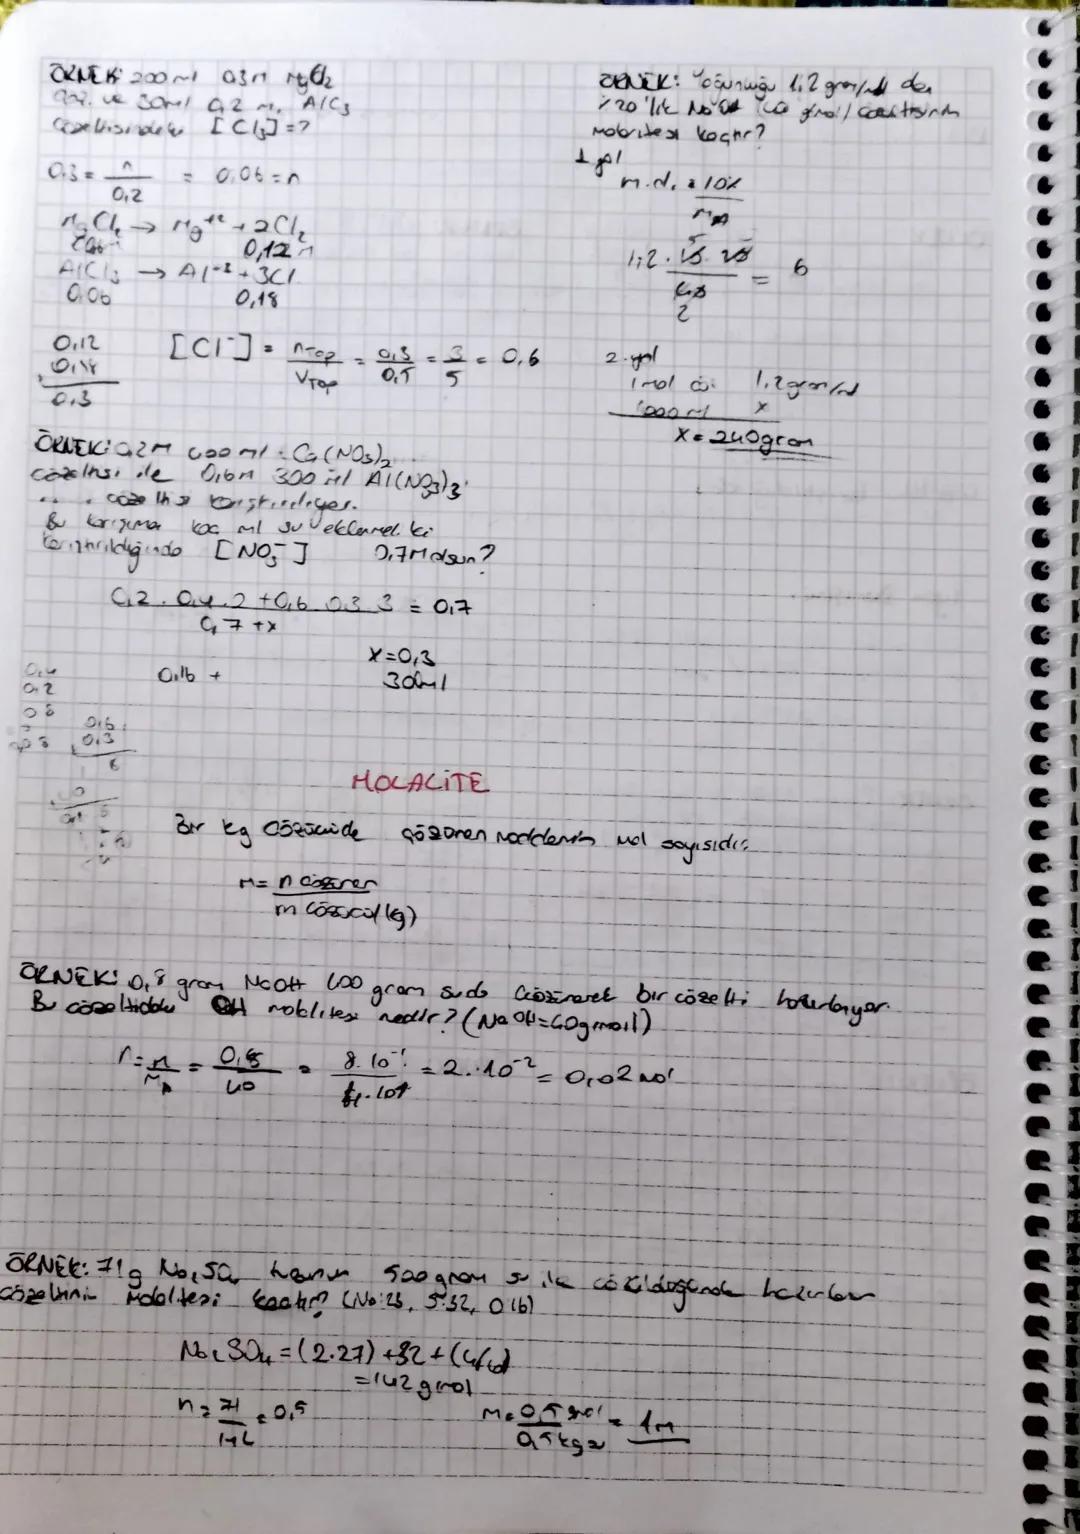 ÖRNEK: 200 ml 0,3 M MgCl2
ve 30ml 0,2 M, AlCl3
çözeltisindeki [Cl3] = ?
0,3 = n / 0,2 = 0,06 = n
MgCl2 → Mg+2 + 2Cl2
0,12
AlCl3 → Al-3 + 3Cl
0,06 0,18
0,12
0,18
0,3
[Cl-] = nTop / VTop = 0,3 / 0,5 = 3 / 5 = 0,6
ÖRNEK: 0,2M 400 ml Ca(NO3)2
çözeltisi ile 0,6M 300 ml Al(NO3)3
çözeltisi karıştırılıyor.
Bu karışıma kaç ml su eklemeli ki
karıştırıldığında [NO3-] 0,7M olsun?
0,2 . 0,4 . 2 + 0,6 0,3 3 / 0,7 + x = 0,7
x = 0,3
300ml
0,16 +
0,4
0,2
0,6
0,3
ÖRNEK: Yoğunluğu 1,2 gram/ml olan
%20'lik (40 g/mol) çözeltisinin
molaritesi kaçtır?
1. yol
m.d. = 10%
MA
1,2 . 20 / 40 = 6
2
2. yol
1 ml çöz 1,2 gram/ml
1000 ml x
x = 240gram
MOLALİTE
Bir kg çözücüde çözünen maddenin mol sayısıdır.
M = n çözünen
m çözücü(kg)
ÖRNEK: 0,8 gram NaOH 400 gram suda çözünerek bir çözelti hazırlanıyor.
Bu çözeltideki OH molalitesi nedir? (NaOH=40gmol)
n = m / MA = 0,8 / 40 = 8.10-1 / 4.101 = 2.10-2 = 0,02 mol
ÖRNEK: 71g Na2SO4 tuzunun 500 gram su ile çözüldüğünde hazırlanan
çözeltinin molalitesi kaçtır? (Na:23, S:32, O:16)
Na2SO4 = (2.27) + 32 + (4.16)
= 142 gmol
n = 71 / 142 = 0,5
M = 0,5 mol / 0,5 kg = 1M